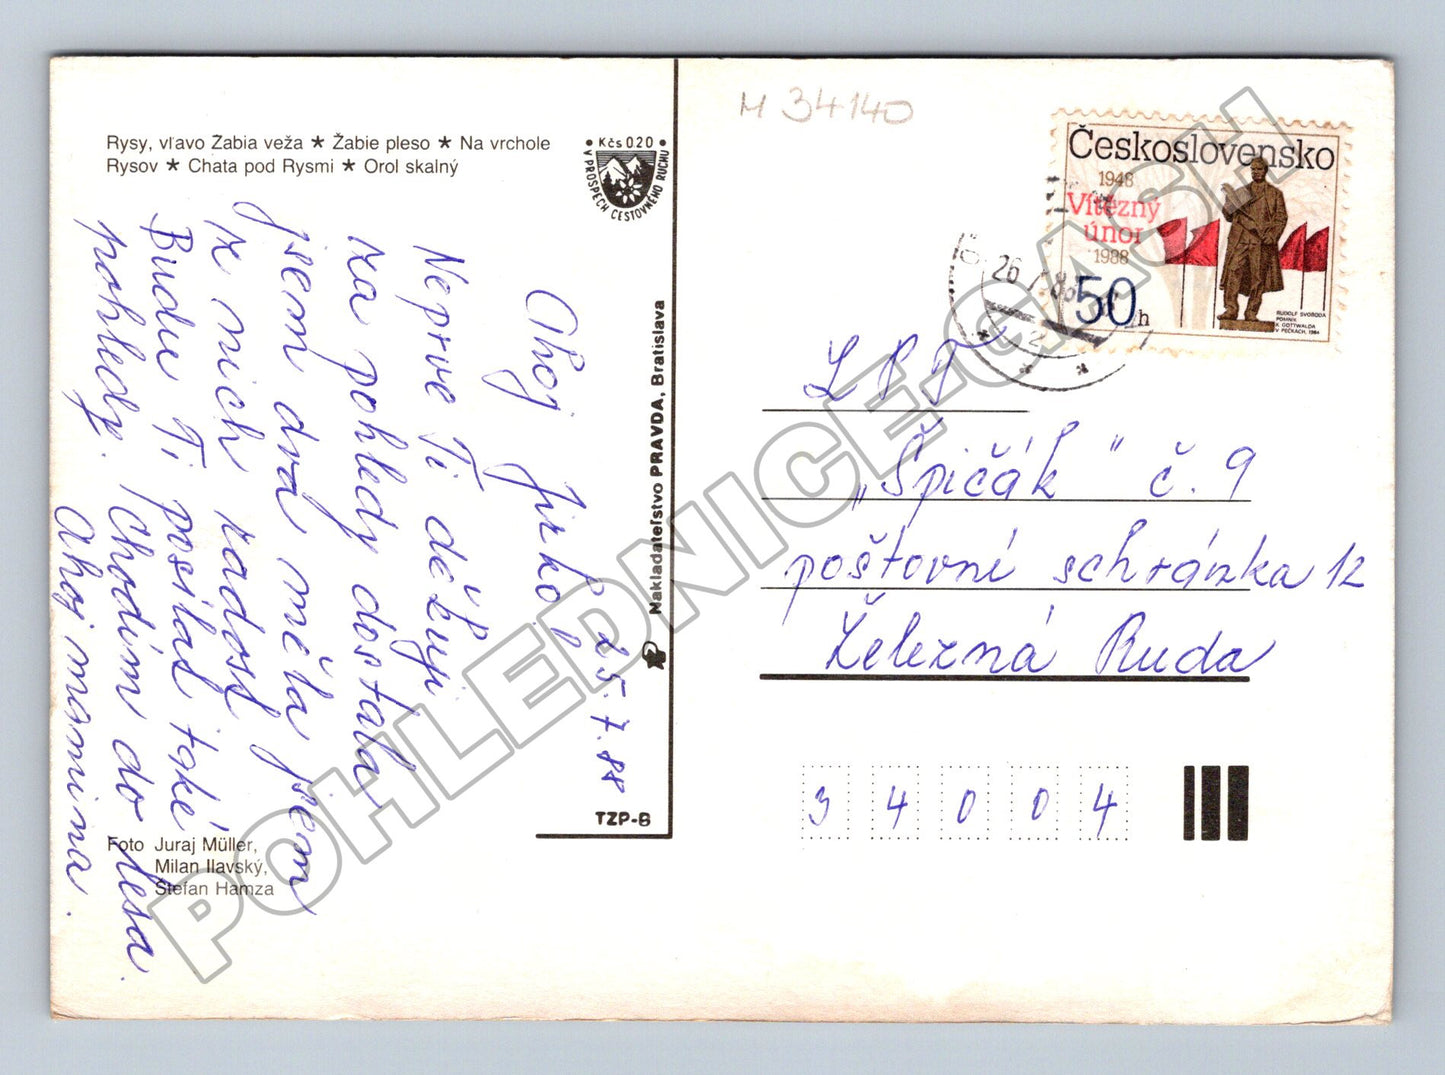 Rysy, vľavo Žabia veža ★ Žabie pleso ★ Na vrchole
Rysov ★ Chata pod Rysmi ★ Orol skalný
Kčs 020
V PROSPECH CESTOVNÉHO RUCHU
M 34140
Československo
1948
Vítězný
únor
1988
50 h
RUDOLF SVOBODA
POMNÍK
K. GOTTWALDA
V PEČKÁCH, 1984
26 7 88
2
Ahoj Jirko!
25.7.88
Neprve Ti děkuji
za pohledy dostala
jsem dva měla jsem
z nich radost
Budu Ti posílat také
pohledy. Chodím do lesa
Ahoj mamina.
Nakladateľstvo PRAVDA, Bratislava
TZP-6
LPT
„Špičák" č. 9
poštovní schránka 12
Železná Ruda
3 4 0 0 4
Foto Juraj Müller,
Milan Ilavský,
Štefan Hamza
POHLEDNICE-GASH